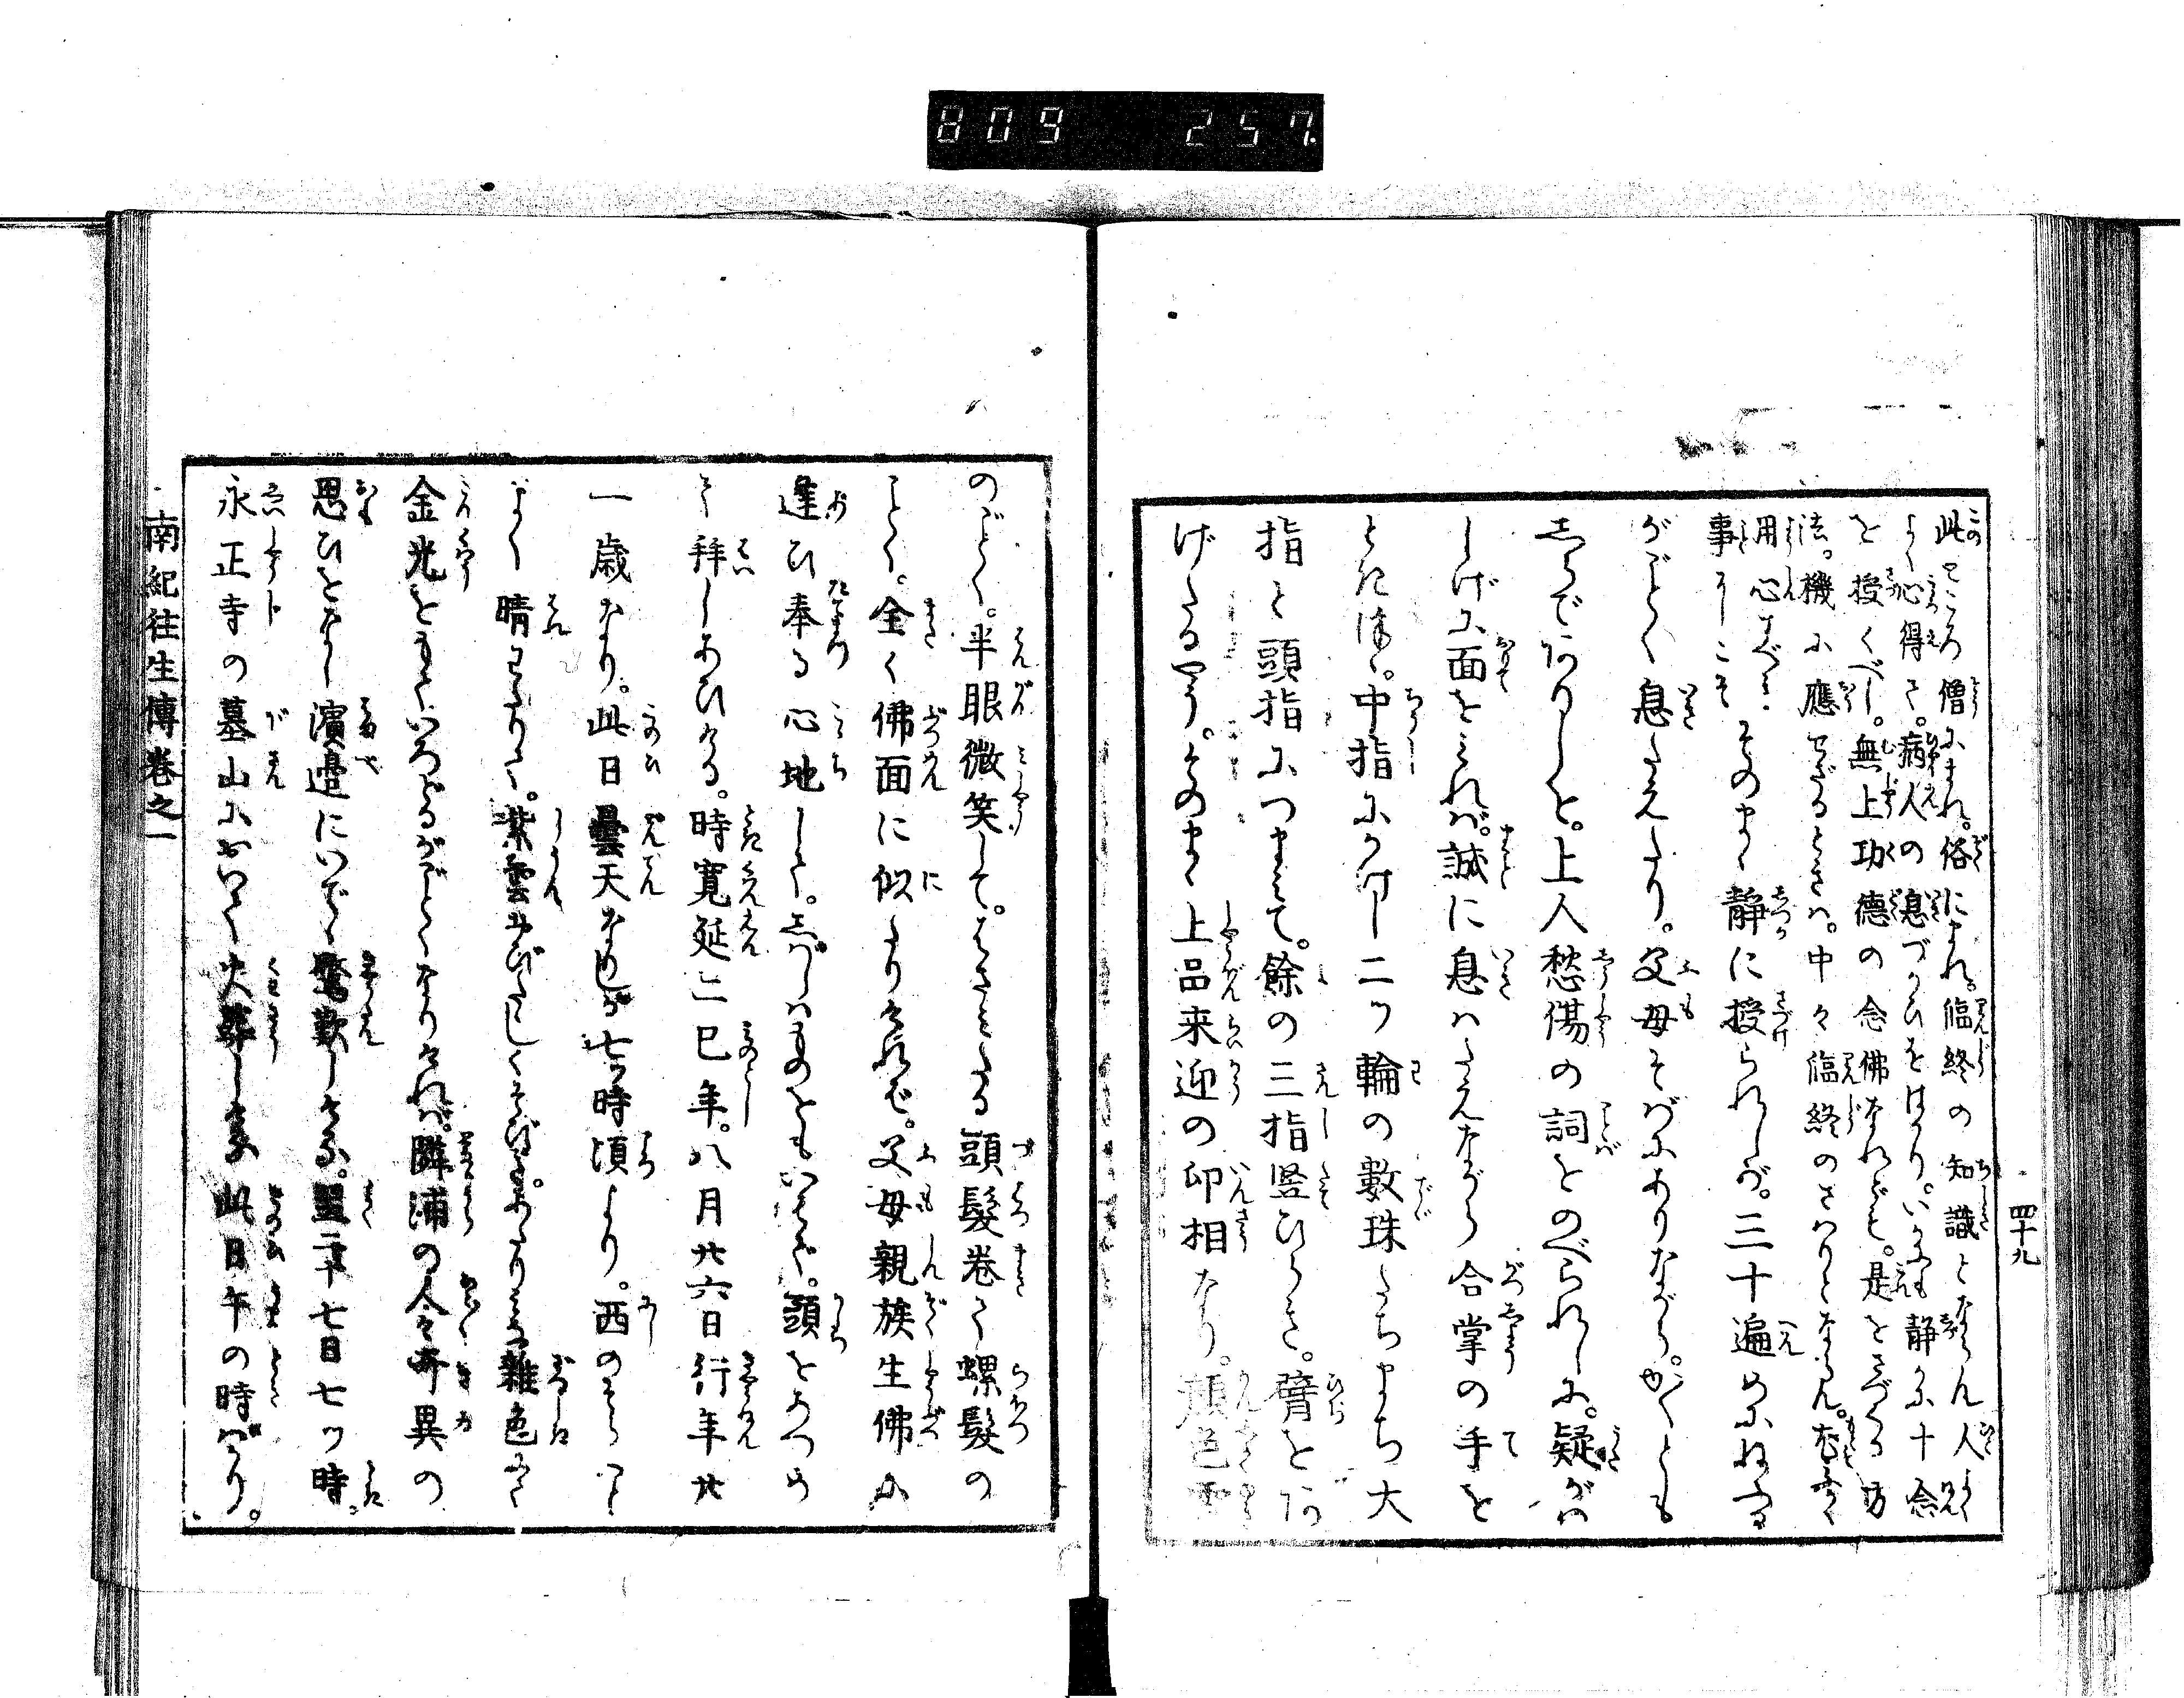 809 257
四十九
此ところ僧にまれ。俗にまれ。臨終の知識とならん人
よく心得て。病人の息づかひをはかり。いかにも静かに十念
を授くべし。無上功徳の念佛なれども。是をさづくる方
法。機に應ぜざるときハ。中々臨終のさハりとなるなん。
用心すべき
事にこそそのまゝ静に授られしが。三十遍めにねふる
がごとく息たえたり。父母そばにありながら。かくとも
しらでありしを。上人愁傷の詞をのべられしに。疑がハ
しげに面をミれバ。誠に息ハたえながら合掌の手を
ときほぐ。中指にかけし二ツ輪の數珠たちまち大
指と頭指につまミて。餘の三指竪ひらき。臂をあ
げたるやう。そのまゝ上品来迎の印相なり。顔色雪
のごとく。半眼微笑して。そさミたる頭髮巻て螺髮の
ごとく。全く佛面に似たりけれバ。父母親族生佛に
逢ひ奉る心地して。しバしハものをもいはず。頭をあつめ
て拜しあひける。時寛延二巳年。八月廿六日行年廿
一歳なり。此日曇天なりしが七ツ時頃より。西のそらハ
よく晴わたりて。紫雲おびたゞしくそびき。あたりける雜色にて
金光をもていろどるがごとくなりけれバ。隣浦の人々奇異の
思ひをなし濱邉にいでゝ驚歎しける。翌二十七日七ツ時。
永正寺の墓山において火葬しき此日午の時ばかり。
南紀往生傳卷之一